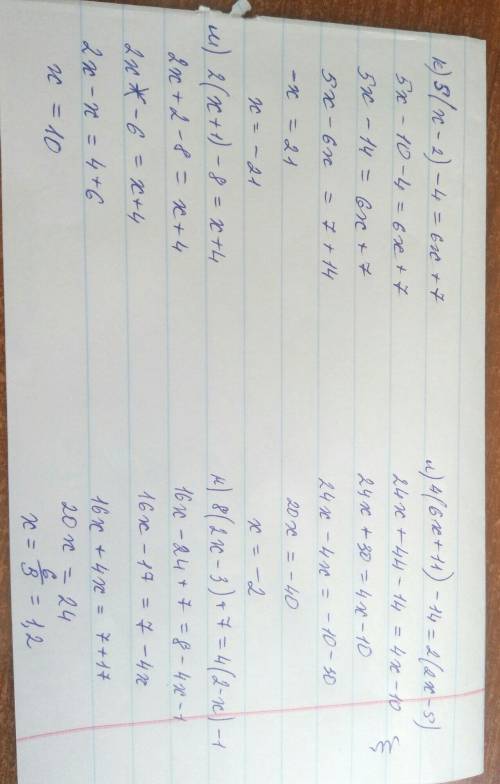 к) 5(x-2)-4=6x+7
5x-10-4=6x+7
5x-14=6x+7
5x-6x=7+14
-x=21
x=-21
м) 2(x+1)-8=x+4
2x+2-8=x+4
2x-6=x+4
2x-x=4+6
x=10
л) 4(6x+11)-14=2(2x-5)
24x+44-14=4x-10
24x+30=4x-10
24x-4x=-10-30
20x=-40
x=-2
н) 8(2x-3)+7=4(2-x)-1
16x-24+7=8-4x-1
16x-17=7-4x
16x+4x=7+17
20x=24
x=6/5=1,2